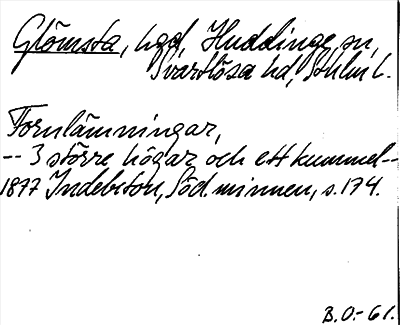 Glömsta, hgd, Huddinge sn,
Svartlösa hd, Sthlm l.
Fornlämningar,
-- 3 större högar och ett kummel --
1877 Indebetou, Söd. minnen, s. 174.
B.O.-61.